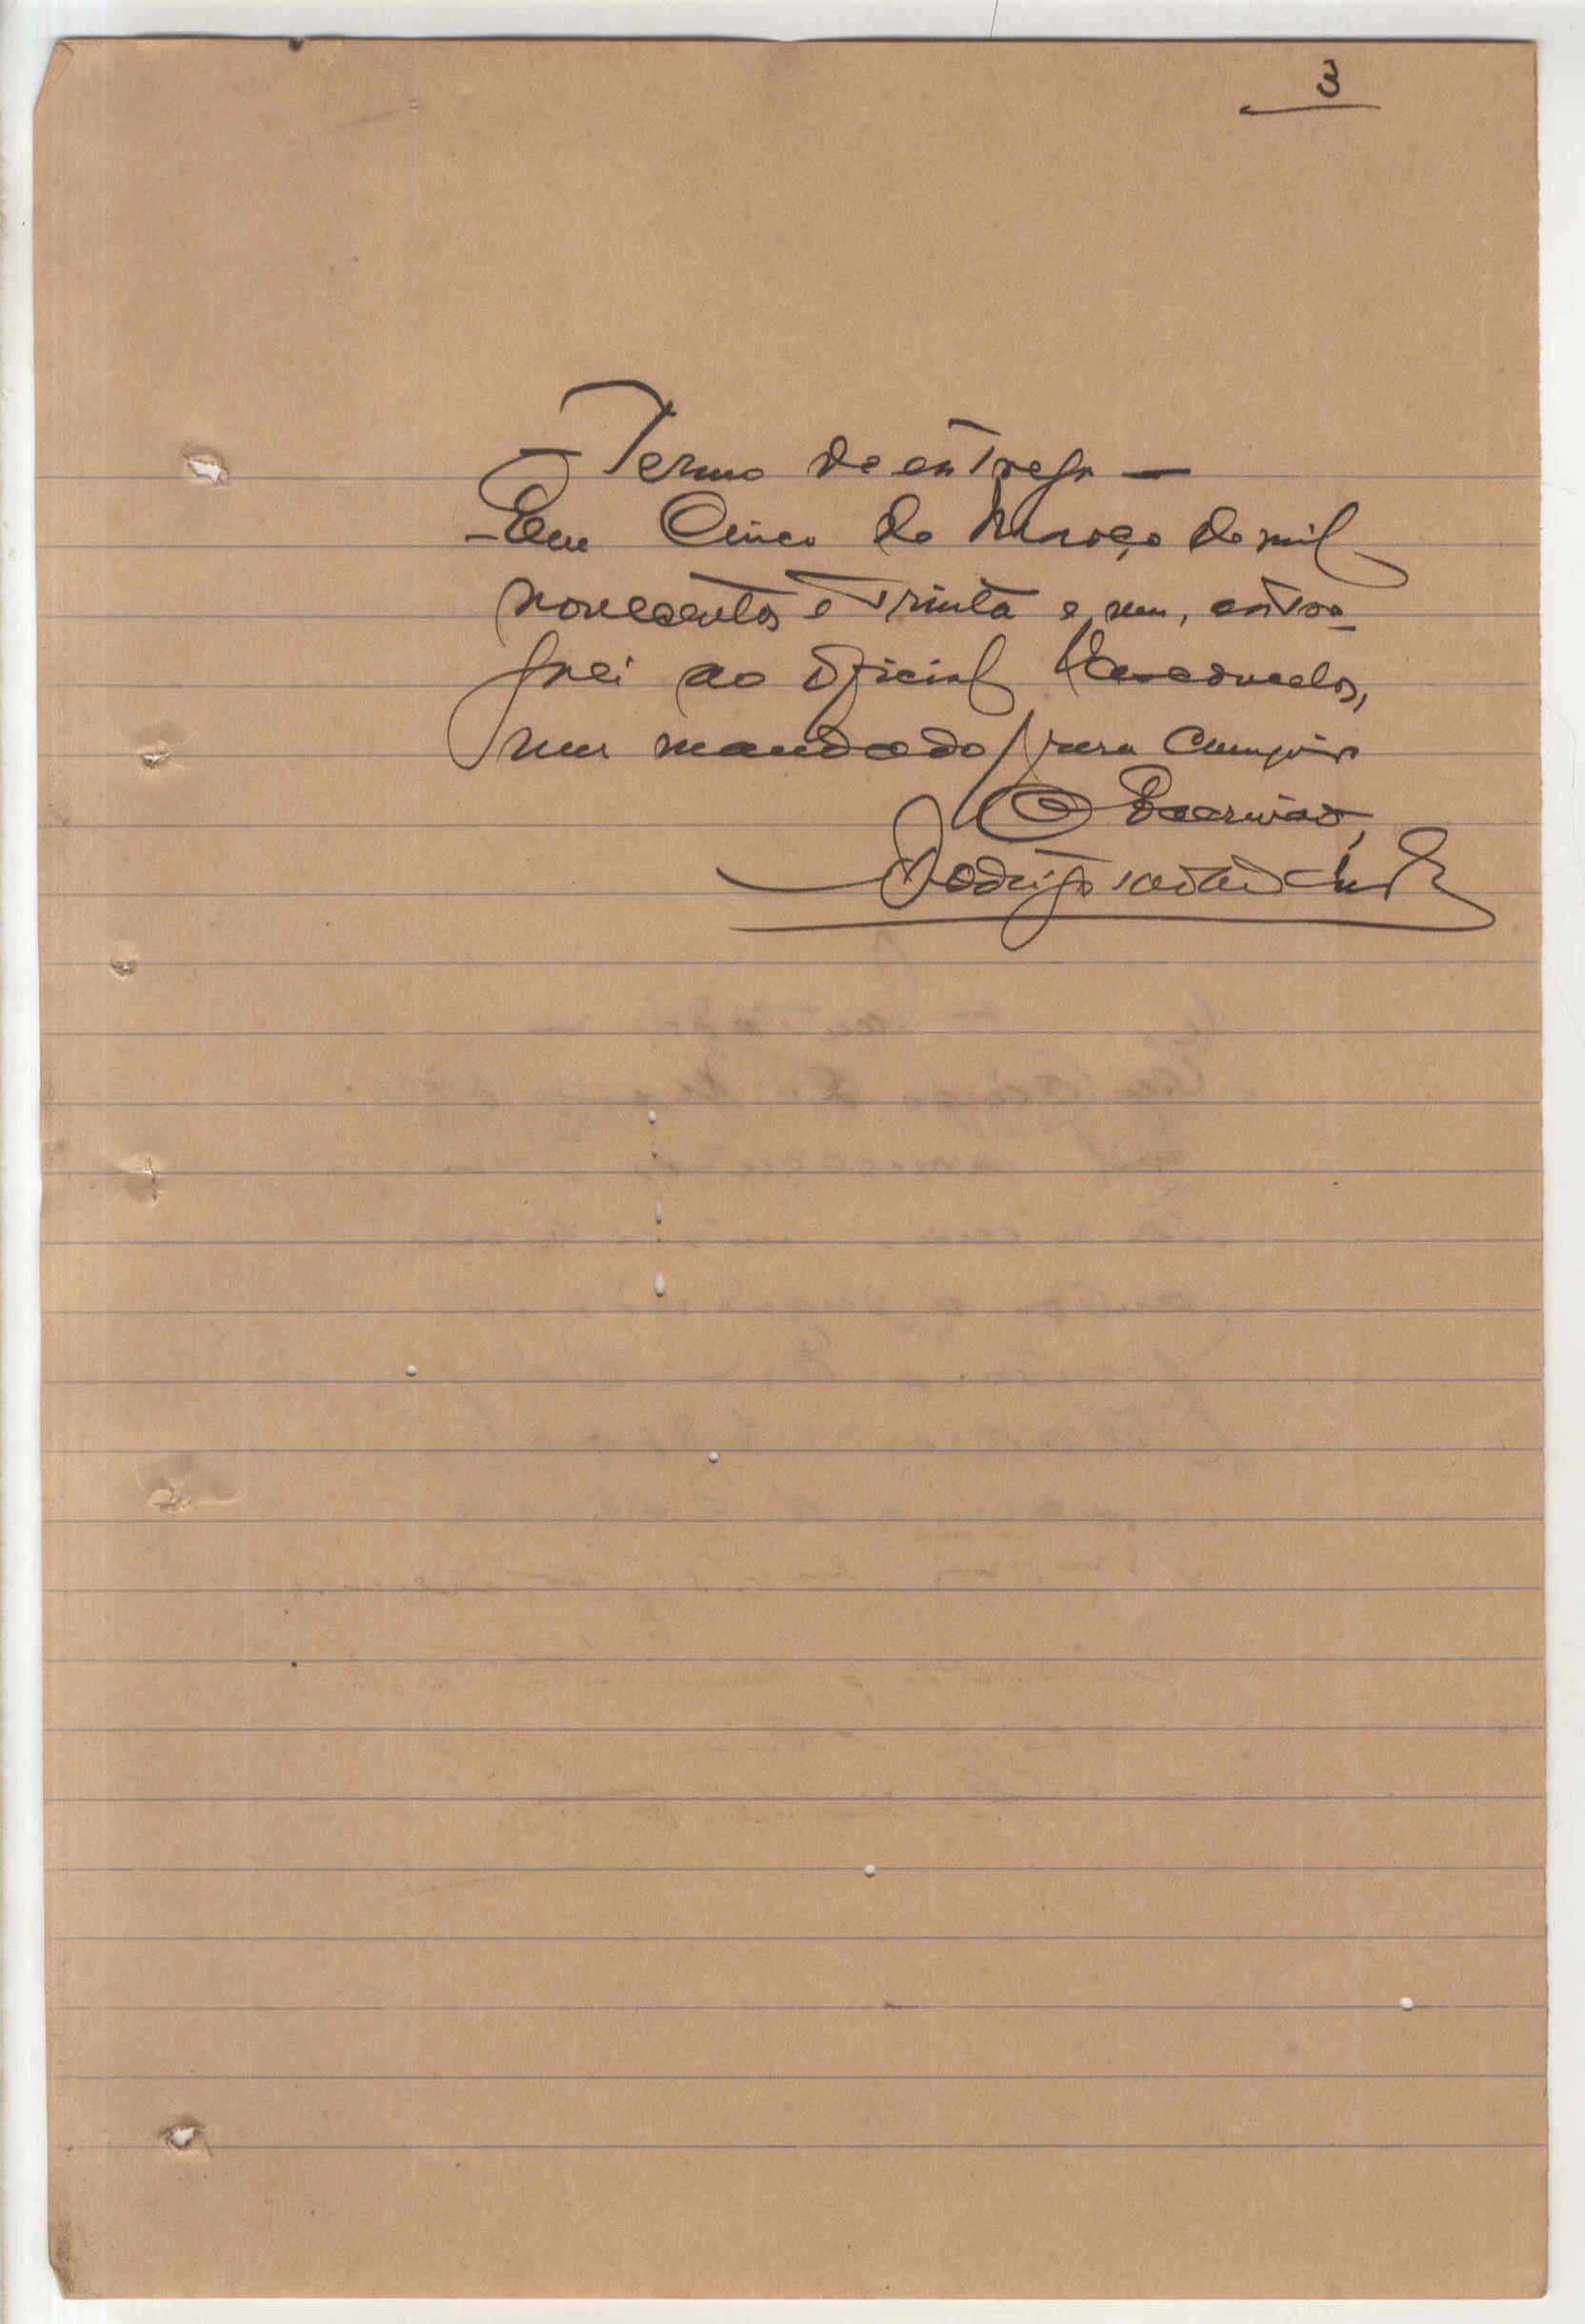 3
— Termo de entrega —
— Em Cinco de Março de mil
novecentos e Trinta e um, entre-
guei ao Oficial Vasconcelos,
um mandado para Cumprir
O Escrivão,
Rodrigo